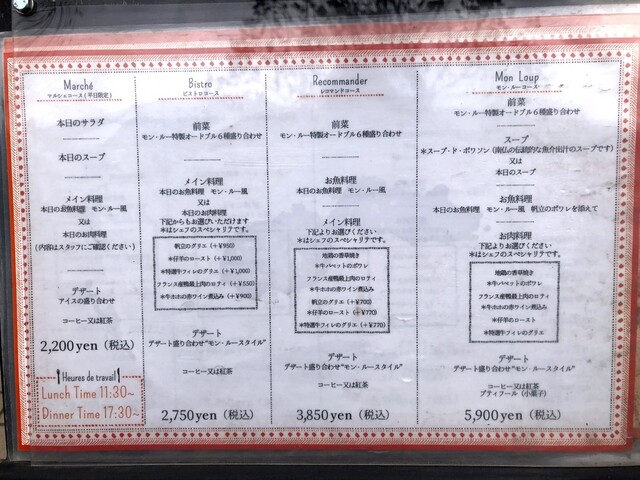 Marché
マルシェコース(平日限定)
本日のサラダ
本日のスープ
メイン料理
本日のお魚料理 モン・ルー風
又は
本日のお肉料理
(内容はスタッフにご確認ください)
デザート
アイスの盛り合わせ
コーヒー又は紅茶
2,200yen(税込)
Heures de travail
Lunch Time 11:30~
Dinner Time 17:30~
Bistro
ビストロコース
前菜
モン・ルー特製オードブル6種盛り合わせ
メイン料理
本日のお魚料理 モン・ルー風
又は
本日のお肉料理
下記からもお選びいただけます
*はシェフのスペシャリテです。
帆立のグリエ(+¥950)
*仔羊のロースト(+¥1,000)
*特選牛フィレのグリエ(+¥1,000)
フランス産鴨最上肉のロティ(+¥550)
*牛ホホの赤ワイン煮込み(+¥900)
デザート
デザート盛り合わせ“モン・ルースタイル”
コーヒー又は紅茶
2,750yen(税込)
Recommander
レコマンドコース
前菜
モン・ルー特製オードブル6種盛り合わせ
お魚料理
本日のお魚料理 モン・ルー風
メイン料理
下記よりお選びください
*はシェフのスペシャリテです。
地鶏の香草焼き
*牛バベットのポワレ
フランス産鴨最上肉のロティ
*牛ホホの赤ワイン煮込み
帆立のグリエ(+¥700)
*仔羊のロースト(+¥770)
*特選牛フィレのグリエ(+¥770)
デザート
デザート盛り合わせ“モン・ルースタイル”
コーヒー又は紅茶
3,850yen(税込)
Mon Loup
モン・ルーコース
前菜
モン・ルー特製オードブル6種盛り合わせ
スープ
*スープ・ド・ポワソン(南仏の伝統的な魚介出汁のスープです)
又は
本日のスープ
お魚料理
本日のお魚料理 モン・ルー風 帆立のポワレを添えて
お肉料理
下記よりお選びください
*はシェフのスペシャリテです。
地鶏の香草焼き
*牛バベットのポワレ
フランス産鴨最上肉のロティ
*牛ホホの赤ワイン煮込み
*仔羊のロースト
*特選牛フィレのグリエ
デザート
デザート盛り合わせ“モン・ルースタイル”
コーヒー又は紅茶
プティフール(小菓子)
5,900yen(税込)